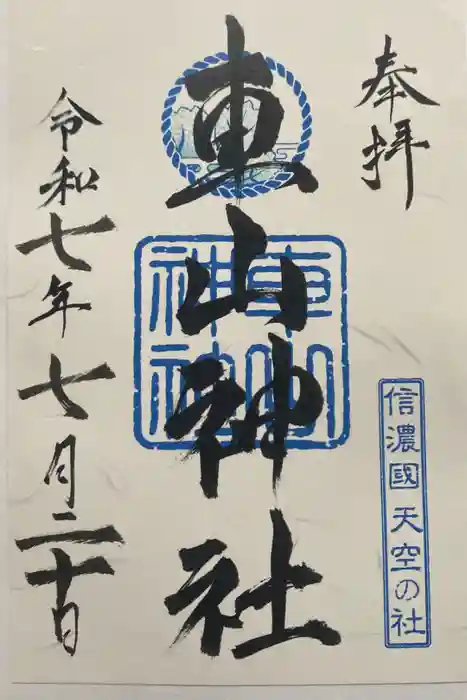 奉拝
信濃國 天空の社
車山神社
車山神社
令和七年七月二十日